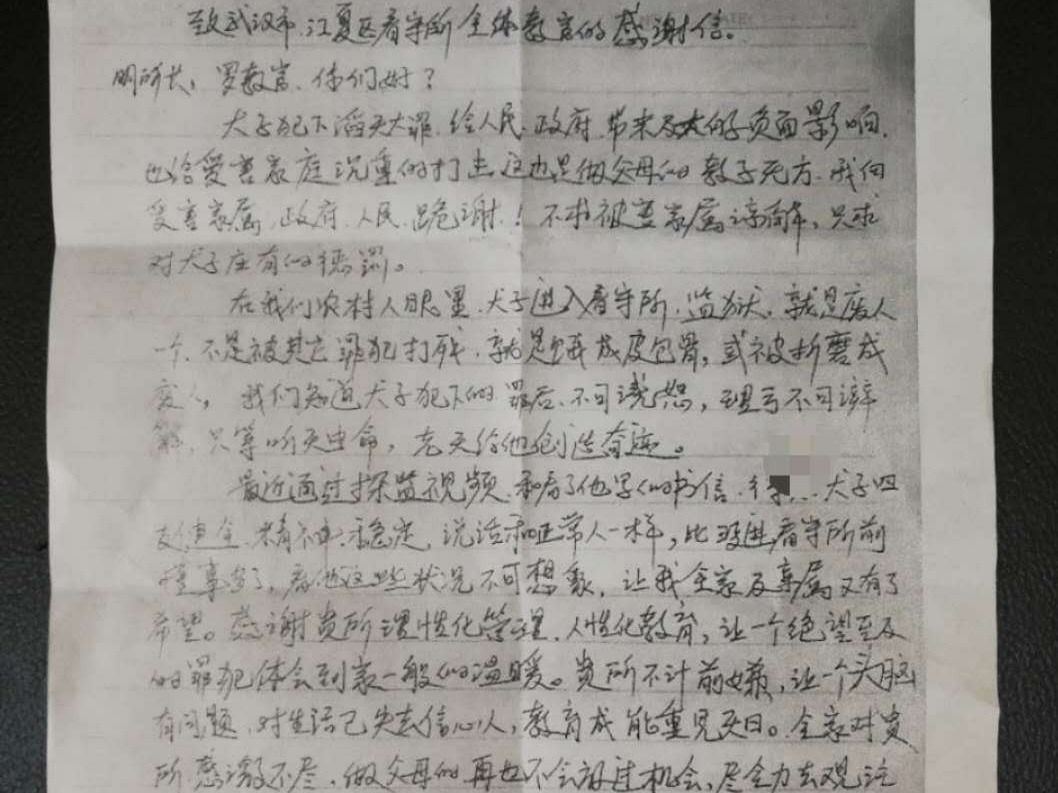 致武汉市江夏区看守所全体教官的感谢信。
明所长，罗教官，你们好？
犬子犯下滔天大罪，给人民，政府，带来及大的负面影响，
也给受害家庭沉重的打击，这也是做父母的教子无方，我们向
受害家属，政府，人民，跪谢，！不求被害家属谅解，只求
对犬子应有的惩罚。
在我们农村人眼里，犬子进入看守所，监狱，就是废人
一个，不是被其它罪犯打残，就是饿成皮包骨，或被折磨成
废人，我们知道犬子犯下的罪后，不可饶恕，理亏不可辩
解，只等听天由命，老天给他创造奇迹。
最近通过探监视频，和看了他写的书信，犬子四
肢健全，精神稳定，说话和正常人一样，比没进看守所前
懂事多了，看他这些状况不可想象，让我全家及亲属又有了
希望。感谢贵所理性化管理，人性化教育，让一个绝望至及
的罪犯体会到家一般的温暖。贵所不计前嫌，让一个头脑
有问题，对生活已失去信心人，教育成能重见天日。全家对贵
所感激不尽，做父母的再也不会放过机会，尽全力去